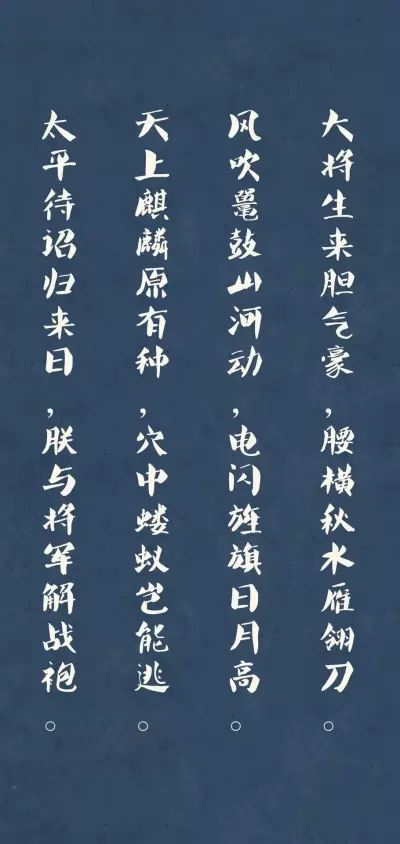 大将生来胆气豪,腰横秋水雁翎刀。
风吹鼍鼓山河动,电闪旌旗日月高。
天上麒麟原有种,穴中蝼蚁岂能逃。
太平待诏归来日,朕与将军解战袍。